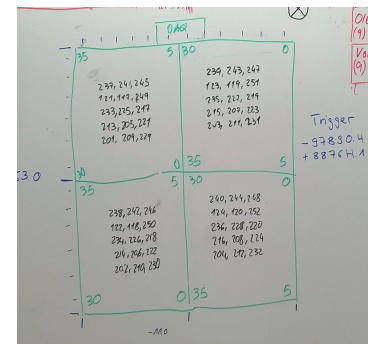 DAQ
35 5 30 0
237, 241, 245
121, 117, 249
233, 225, 217
213, 205, 221
201, 209, 229
239, 243, 247
123, 119, 251
235, 227, 219
215, 207, 223
203, 211, 231
30 0 35 5
Trigger
-97830.4
+8876H.1
35 5 30 0
238, 242, 246
122, 118, 250
234, 226, 218
214, 206, 222
202, 210, 230
240, 244, 248
124, 120, 252
236, 228, 220
216, 208, 224
204, 212, 232
30 0 35 5